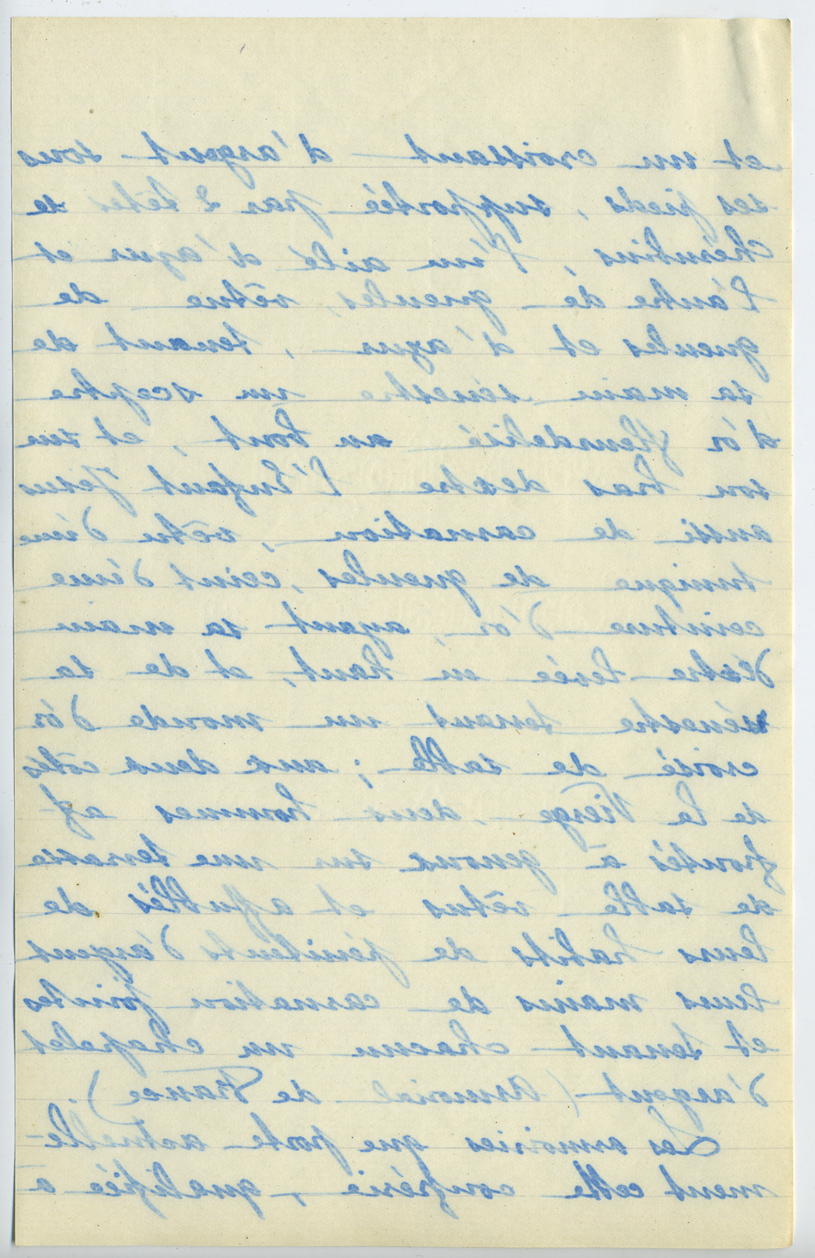 et un croissant d'argent sous
ses pieds, supportée par 2 têtes de
chérubins, l'un ailé d'azur et
l'autre de gueules, vêtue de
gueules et d'azur, tenant de
sa main senestre un sceptre
d'or fleurdelisé au bout, et en
son bras dextre l'Enfant Jésus
aussi de carnation, vêtu d'une
tunique de gueules, ceint d'une
ceinture d'or, ayant sa main
dextre levée en haut, et de sa
sénestre tenant un monde d'or
croisé de sable ; aux deux côtés
de la Vierge, deux hommes af-
frontés à genoux sur une terrasse
de sable vêtus et affublés de
leurs habits de pénitents d'argent
leurs mains de carnation jointes
et tenant chacun un chapelet
d'argent (Armorial de France).
Les armoiries que porte actuelle-
ment cette confrérie, qualifiée à